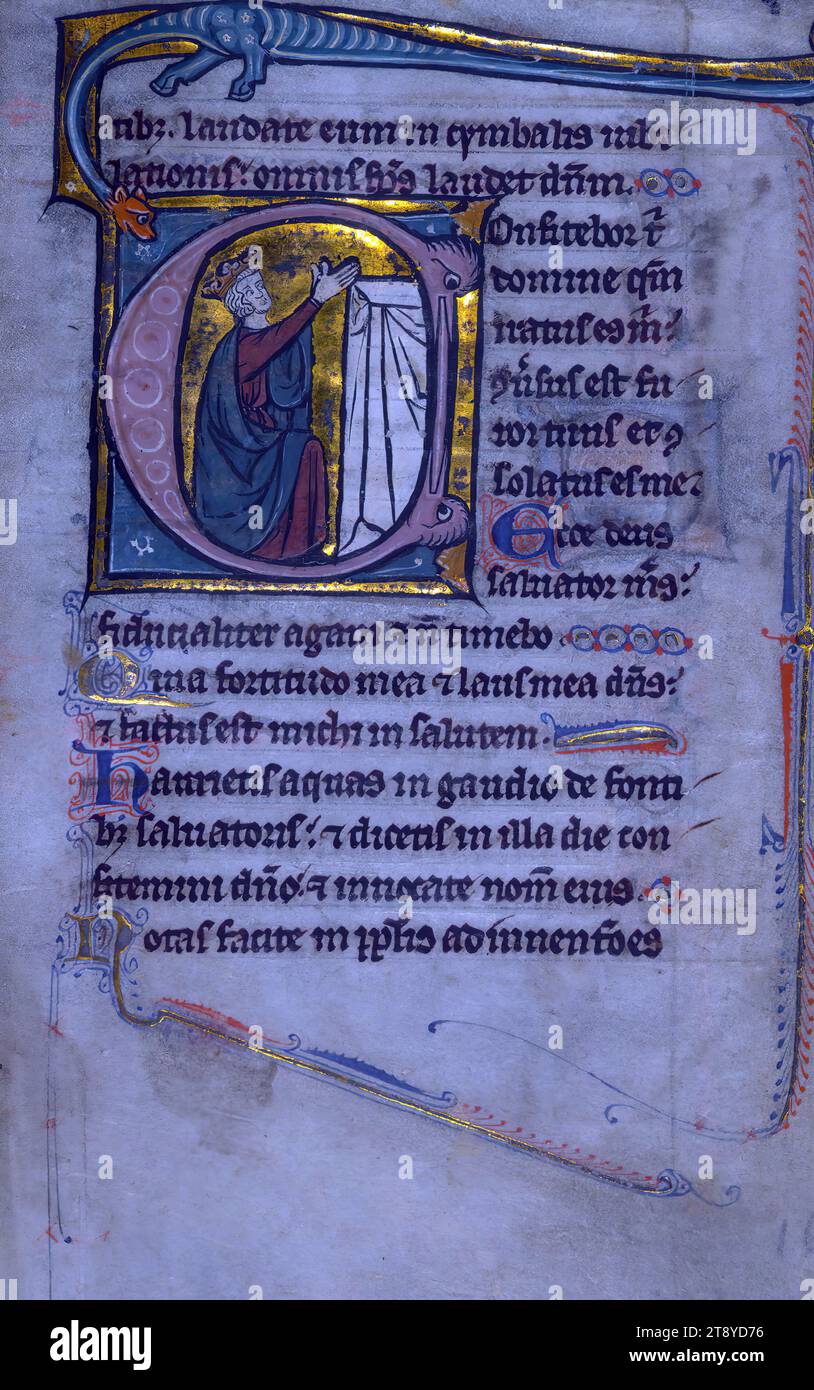 tibz. laudate eum in cymbalis iubi
lationis: omnis sps laudet dnm.
Confitebor t
domine qm
iratus es m:
9uersus est fu
ror tuus et 9
solatus es me.
Ecce deus
saluator ms:
fiducialiter agam et n timebo.
Quia fortitudo mea et laus mea dns:
et factus est michi in salutem.
Haurietis aquas in gaudio de fonti
bz saluatoris: et dicetis in illa die con
fitemini dno et inuocate nom eius.
Notas facite in pplis adinuentões
alamy
Image ID: 2T8YD76
www.alamy.com